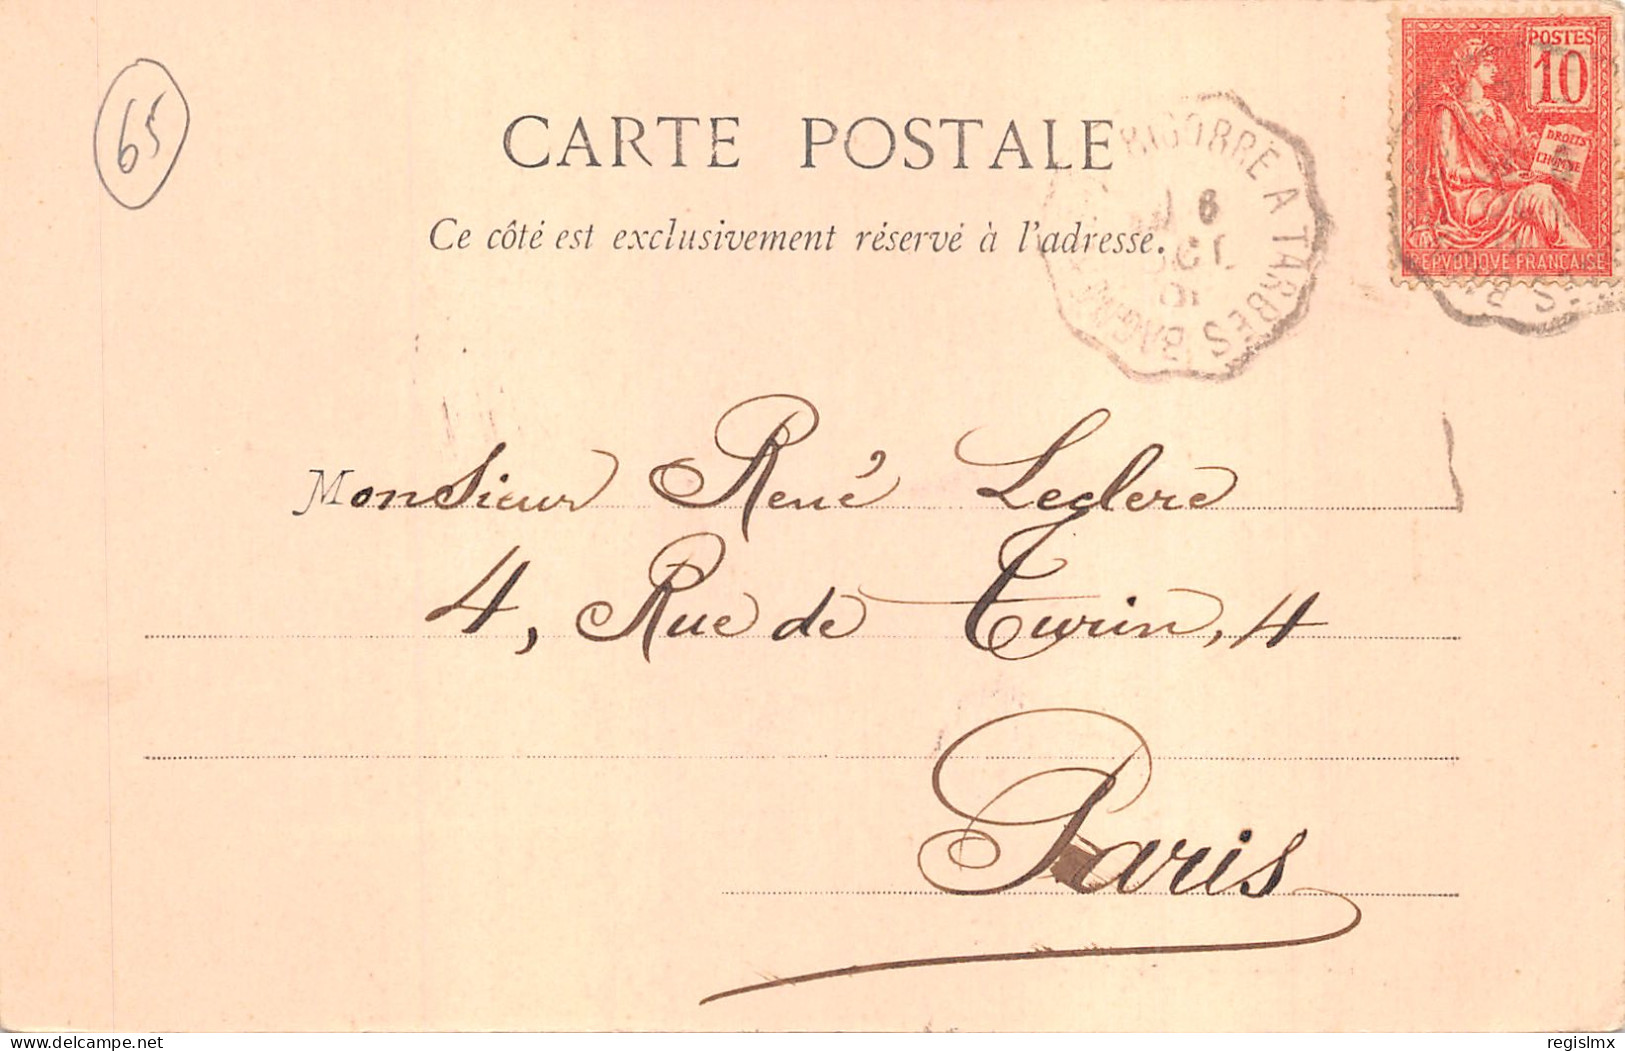 65
CARTE POSTALE
Ce côté est exclusivement réservé à l'adresse.
BIGORRE A TARBES
6
OCT
01
POSTES
10
DROITS
DE L'HOMME
REPVBLIQVE FRANÇAISE
Monsieur René Leclere
4, Rue de Turin, 4
Paris
delcampe.net
regislmx